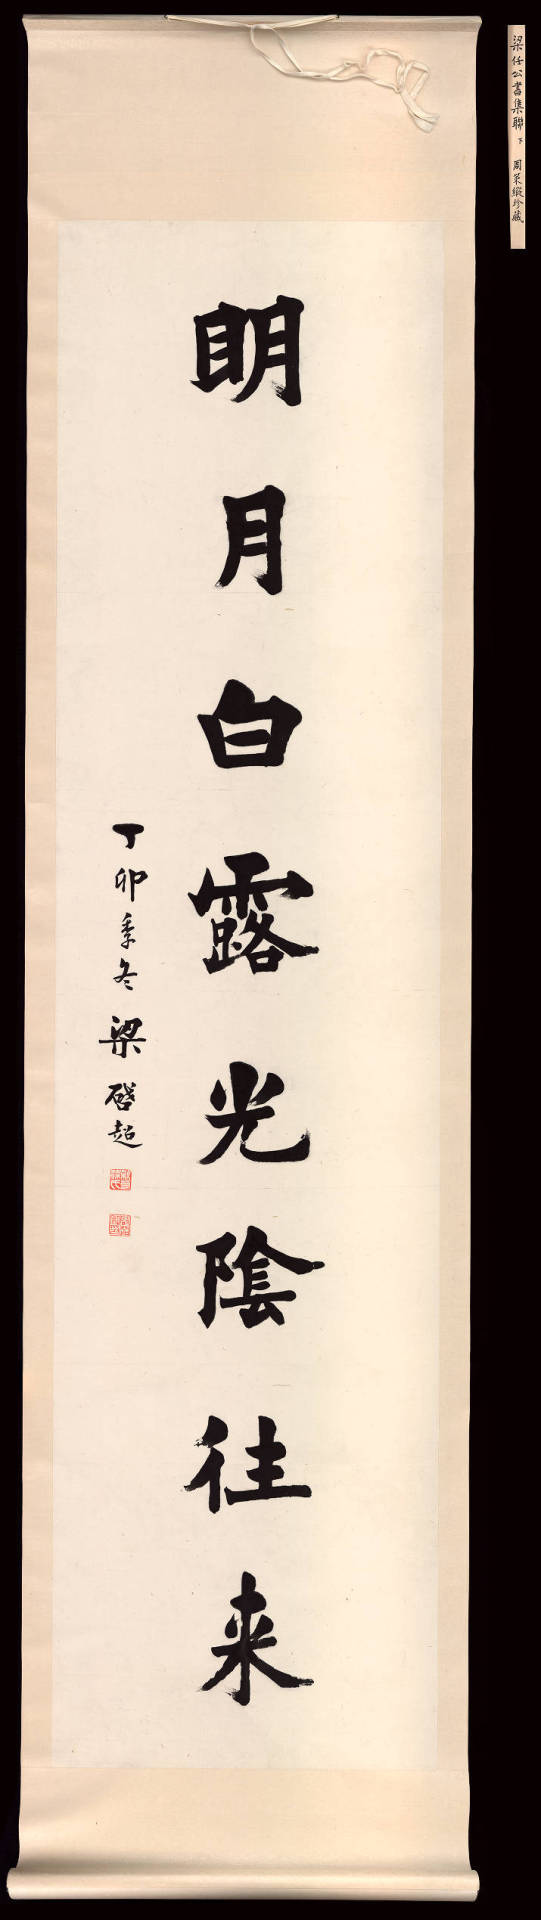 梁任公書集聯 下 周策縱珍藏
明月白露光陰往来
丁卯季冬梁啓超